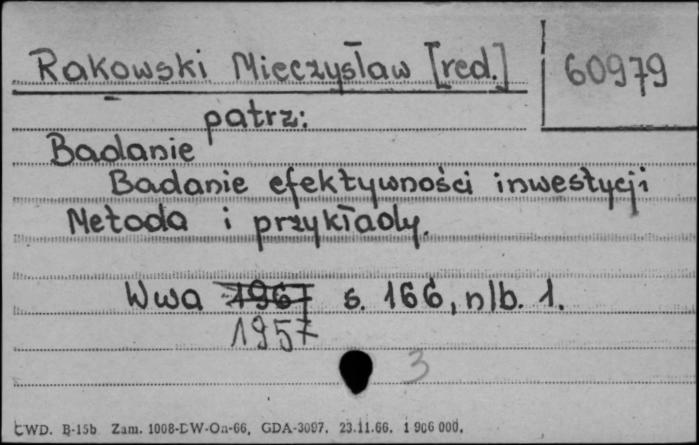 Rakowski Mieczysław [red.] 60979
patrz:
Badanie
Badanie efektywności inwestycji
Metoda i przykłady.
Wwa 1967 s. 166, nlb. 1.
1957
3
CWD. B-15b Zam. 1008-DW-On-66, GDA-3097. 23.11.66. 1 906 000.